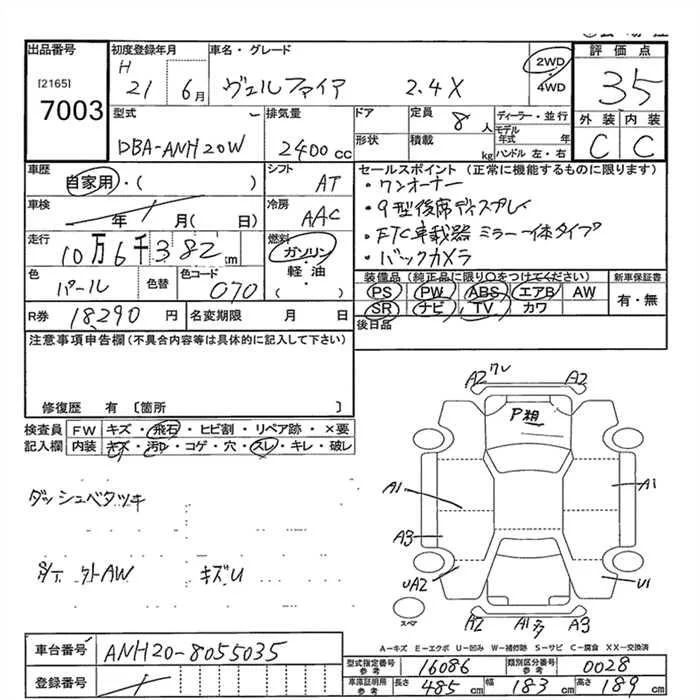 出品番号 初度登録年月 車名・グレード 評価点
[2165] H 21 6月 ヴェルファイア 2.4X 2WD・4WD 35
7003
型式 排気量 ドア 定員 8人 ディーラー・並行 外装 内装
DBA-ANH20W 2400cc 形状 積載 kg モデル年式 年 ハンドル 左・右 C C
車歴 自家用・( ) シフト AT セールスポイント (正常に機能するものに限ります)
・ワンオーナー
車検 年 月(日) 冷房 AAC ・9型後席ディスプレイ
・ETC車載器 ミラー一体タイプ
走行 10万6千382km 燃料 ガソリン 軽油 ・( ) ・バックカメラ
色 パール 色替 色コード 070 装備品 (純正品に限り○をつけてください) 新車保証書
PS PW ABS エアB AW 有・無
R券 18,290円 名変期限 月 日 SR ナビ TV カワ
後日品
注意事項申告欄(不具合内容等は具体的に記入して下さい)
修復歴 有 〔箇所 〕
検査員 FW キズ・飛石・ヒビ割・リペア跡・×要
記入欄 内装 キズ・汚れ・コゲ・穴・スレ・キレ・破レ
ダッシュベタツキ
AW キズU
A2 ワレ A2
P粗
A1 A1
A3
UA2 U1
スペア A2 A1 A3
A-キズ E-エクボ U-凹み W-補修跡 S-サビ C-腐食 XX-交換済
車台番号 ANH20-8055035
型式指定番号 参考 16086 類別区分番号 参考 0028
登録番号 車庫証明用 参考 長さ 485cm 幅 183cm 高さ 189cm